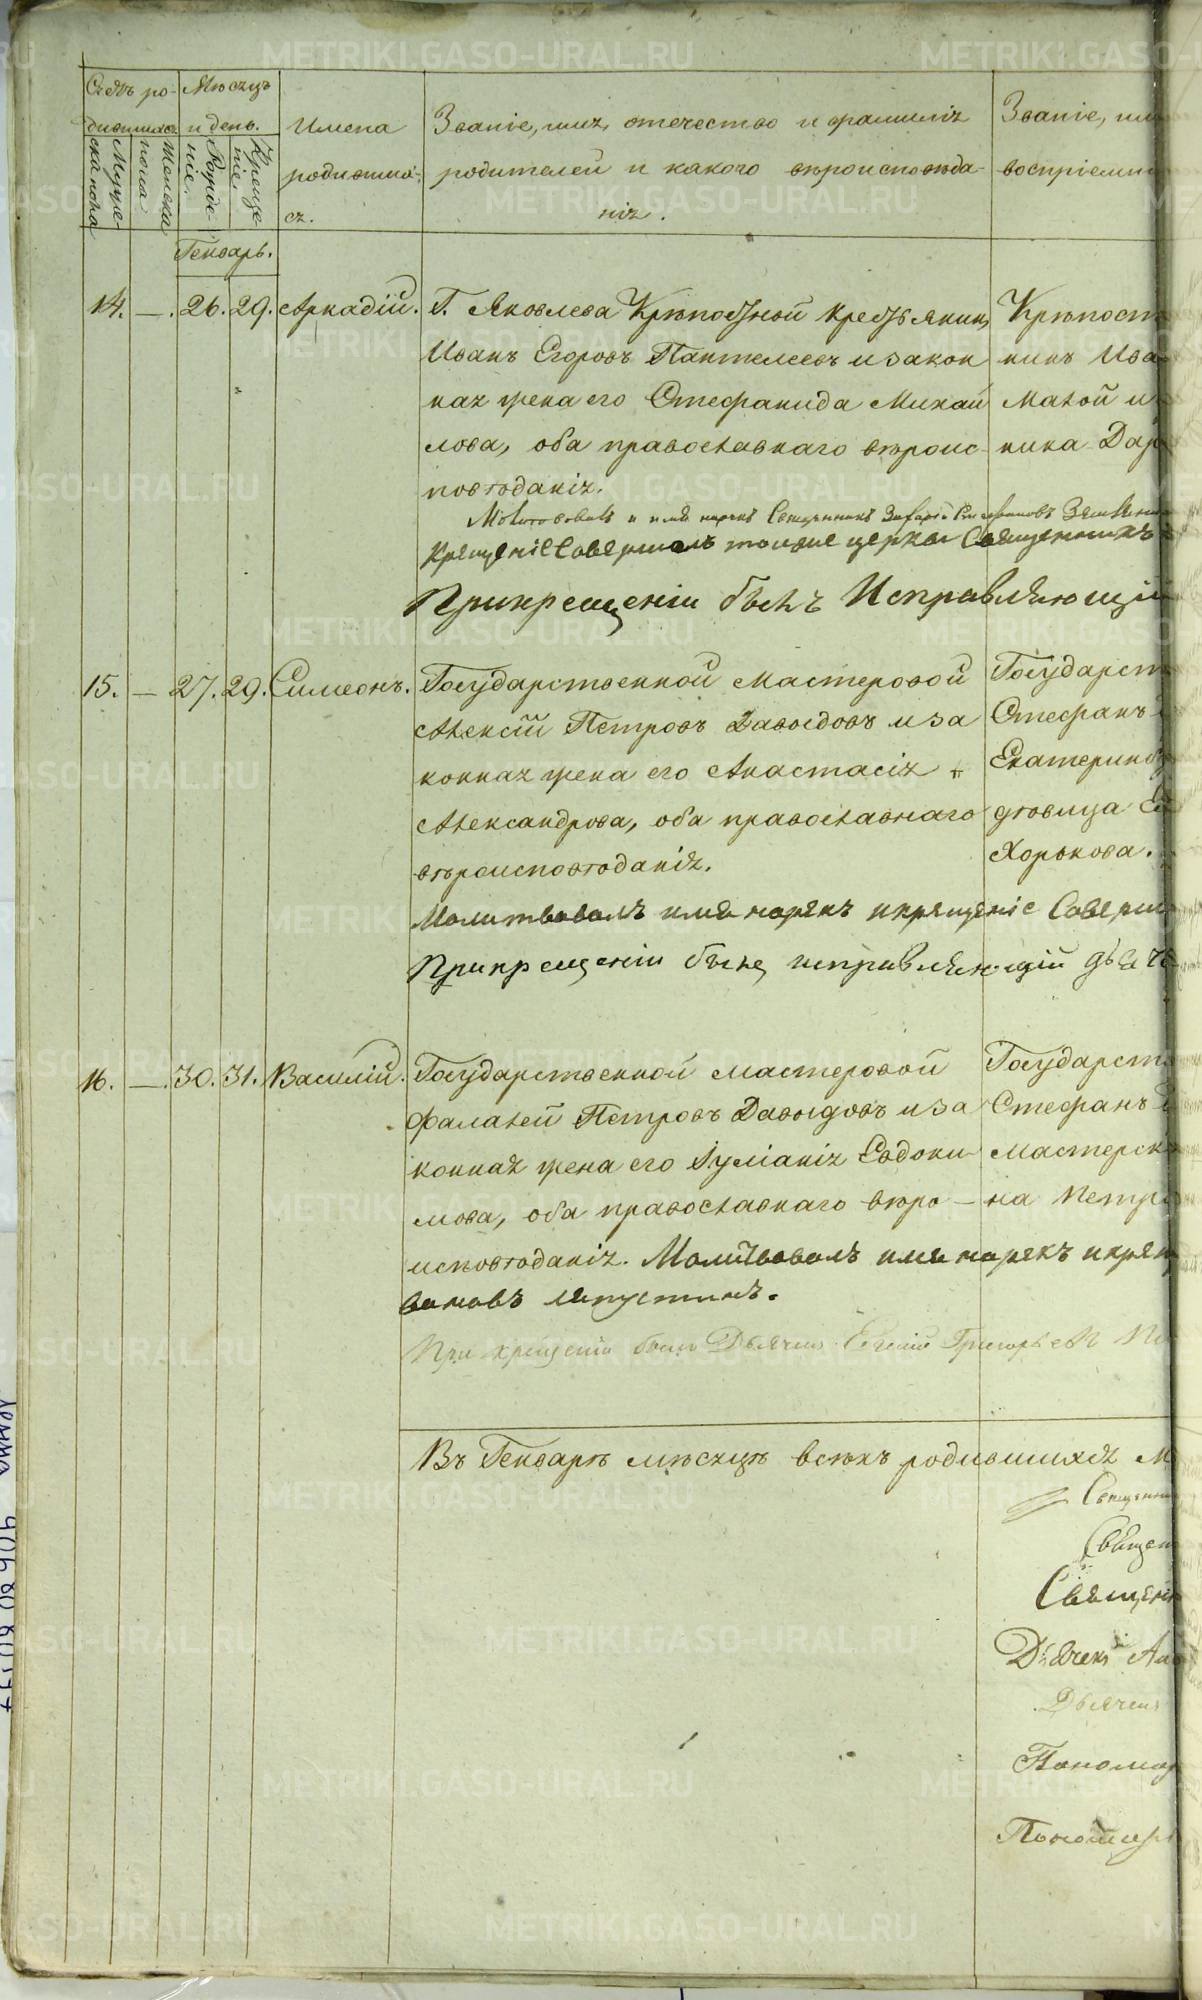 Счетъ ро-
дившихся
Мужескаго пола
Женска пола
Мѣсяцъ
и день.
Рожденіе.
Крещеніе.
Имена
родивших-
ся.
Званіе, имя, отечество и фамилія
родителей и какого вѣроисповѣда-
нія.
Званіе,
воспріемни
Генварь.
14. —. 26. 29. Аркадій.
Г. Яковлева Крѣпостной крестьянинъ
Иванъ Егоровъ Пантелеевъ и закон
ная жена его Стефанида Михай
лова, оба православнаго вѣроис-
повѣданія.
Молитвовалъ и имя нарекъ Священникъ
Крещеніе Совершалъ тоиже церкви Священникъ
При крещеніи былъ Исправляющій
Крѣпост
нинъ Ива
нина Дар
15. — 27. 29. Симеонъ.
Государственной мастеровой
Алексѣй Петровъ Давыдовъ и за
конная жена его Анастасія
Александрова, оба православнаго
вѣроисповѣданія.
Молитвовалъ имя нарекъ и крещеніе Соверши
При крещеніи былъ исправляющій дьяче
Государст
Стефанъ
Екатеринбу
дѣвица
Хорькова.
16. —. 30. 31. Василій.
Государственной мастеровой
Фалалей Петровъ Давыдовъ и за
конная жена его Іуліанія Евдоки
мова, оба православнаго вѣро —
исповѣданія. Молитвовалъ имя нарекъ и крещ
вановъ Ляпустинъ.
При крещеніи былъ Дьячекъ Евгеній Григорьевъ
Государст
Стефанъ
мастерск
на Петр
Въ Генварѣ мѣсяцѣ всѣхъ родившихся М
Священни
Священ
Священ
Дьячекъ
Дьячекъ
Пономар
Пономарь